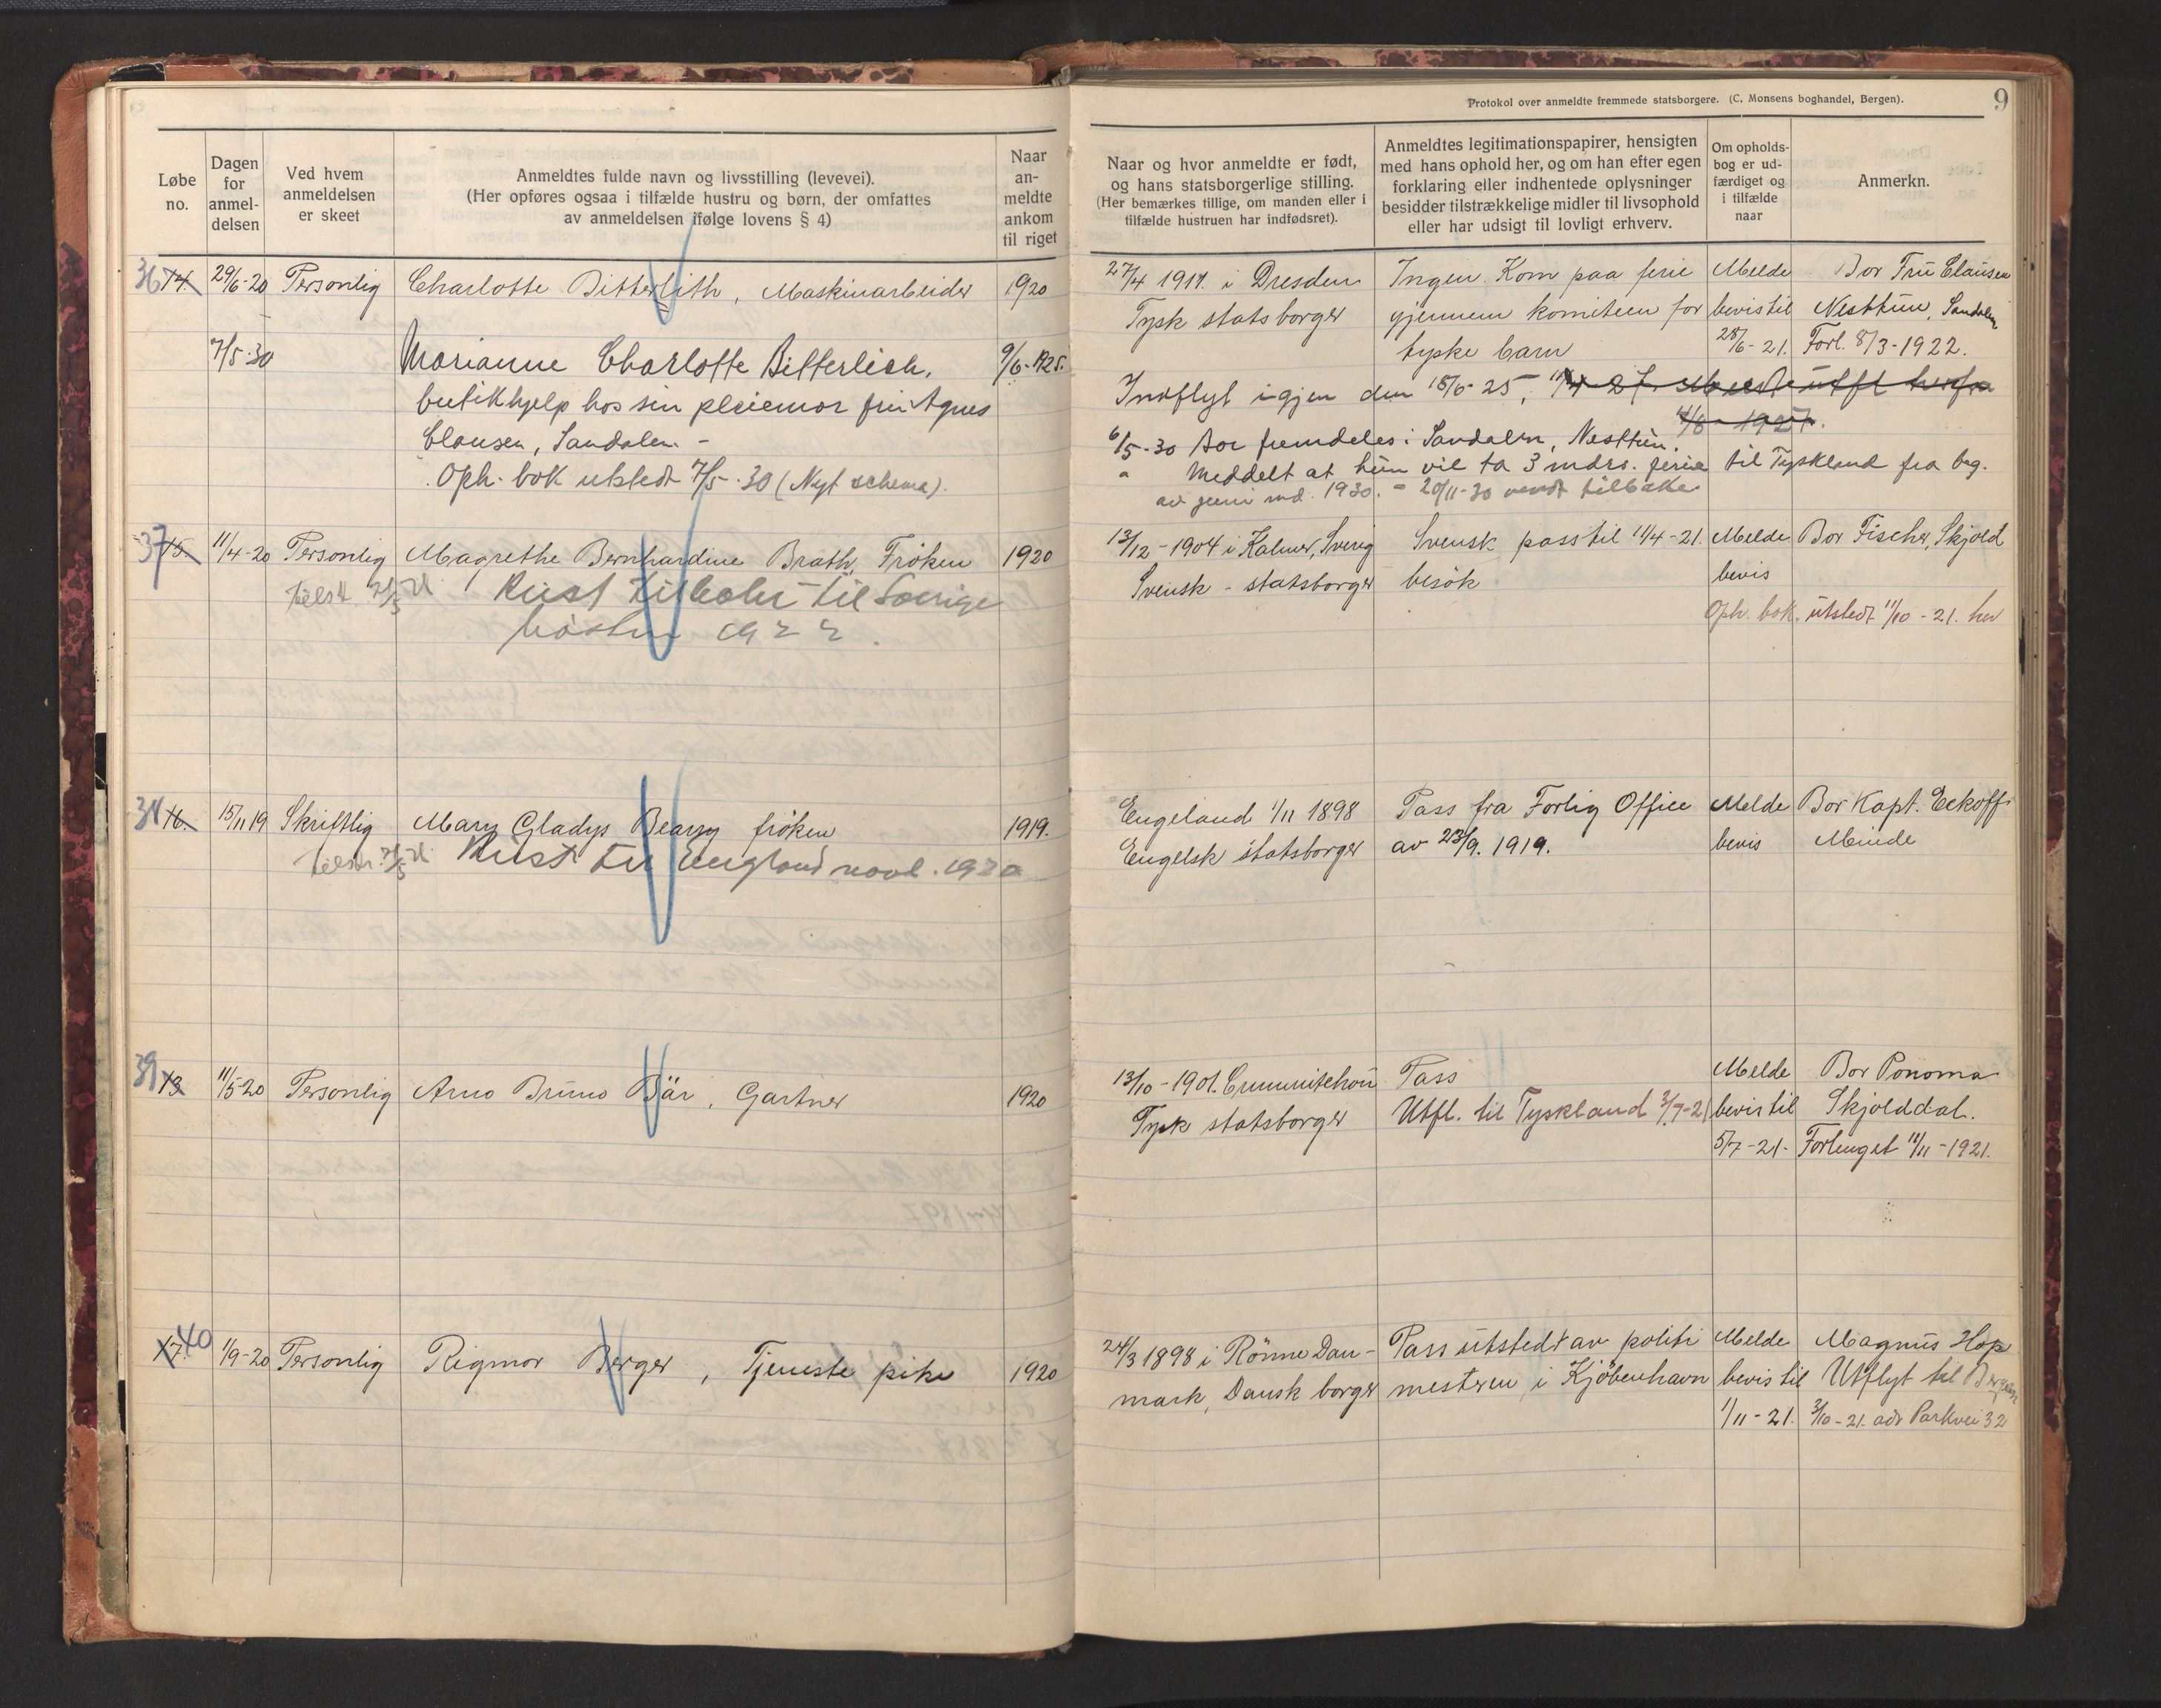 Protokol over anmeldte fremmede statsborgere. (C. Monsens boghandel, Bergen).
9
Løbe no.
Dagen for anmel-delsen
Ved hvem anmeldelsen er skeet
Anmeldtes fulde navn og livsstilling (levevei).
(Her opføres ogsaa i tilfælde hustru og børn, der omfattes
av anmeldelsen ifølge lovens § 4)
Naar an-meldte ankom til riget
Naar og hvor anmeldte er født,
og hans statsborgerlige stilling.
(Her bemærkes tillige, om manden eller i
tilfælde hustruen har indfødsret).
Anmeldtes legitimationspapirer, hensigten
med hans ophold her, og om han efter egen
forklaring eller indhentede oplysninger
besidder tilstrækkelige midler til livsophold
eller har udsigt til lovligt erhverv.
Om opholds-
bog er ud-
færdiget og
i tilfælde
naar
Anmerkn.
36 14. 29/6-20 Personlig Charlotte Bitterlith, Maskinarbeider 1920
27/4 1911. i Dresden Ingen. Kom paa ferie Melde Bor Fru Clausen
Tysk statsborger gjennem komiteen for bevis til Nesttun, Sandalen
tyske barn 28/6-21. Forl. 8/3-1922.
7/5-30 Marianne Charlotte Bitterlich, 9/6-1925.
butikhjelp hos sin pleiemor fru Agnes
Clausen, Sandalen. -
Oph. bok utstedt 7/5-30 (Nyt schema).
Indflyt igjen den 15/6-25,
6/5-30 Bor fremdeles i Sandalen, Nesttun.
Meddelt at hun vil ta 3 mdrs. ferie til Tyskland fra beg.
av juni md. 1930. = 20/11-30 vendt tilbake
37 15. 11/4-20 Personlig Magrethe Bernhardine Brath, Frøken 1920
Reist tilbake til Sverige
høsten 1922.
13/12-1904 i Kalmer, Sverig Svensk pass til 11/4-21. Melde Bor Fischer, Skjold
Svensk - statsborger besøk bevis
Oph. bok. utstedt 11/10-21. her
38 16. 15/11 19 Skriftlig Mary Gladys Bearry frøken 1919.
Reist til England novb. 1920
Engeland 1/11 1898 Pass fra Forlig Office Melde Bor Kapt. Eckoff
Engelsk statsborger av 23/9. 1919. bevis Minde
39 13. 11/5-20 Personlig Arno Bruno Bär, Gartner 1920
13/10-1901. Pass Melde Bor Ponoma
Tysk statsborger Utfl. til Tyskland 3/7-21 bevis til Skjolddal.
5/7-21. Forlenget 11/11-1921.
17. 40 1/9-20 Personlig Rigmor Berger, Tjeneste pike 1920
24/3 1898 i Rönne Dan- Pass utstedt av politi Melde Magnus Hop
mark, Dansk borger mesteren i Kjöbenhavn bevis til Utflyt til Bergen
1/11-21. 3/10-21. adr Parkvei 32